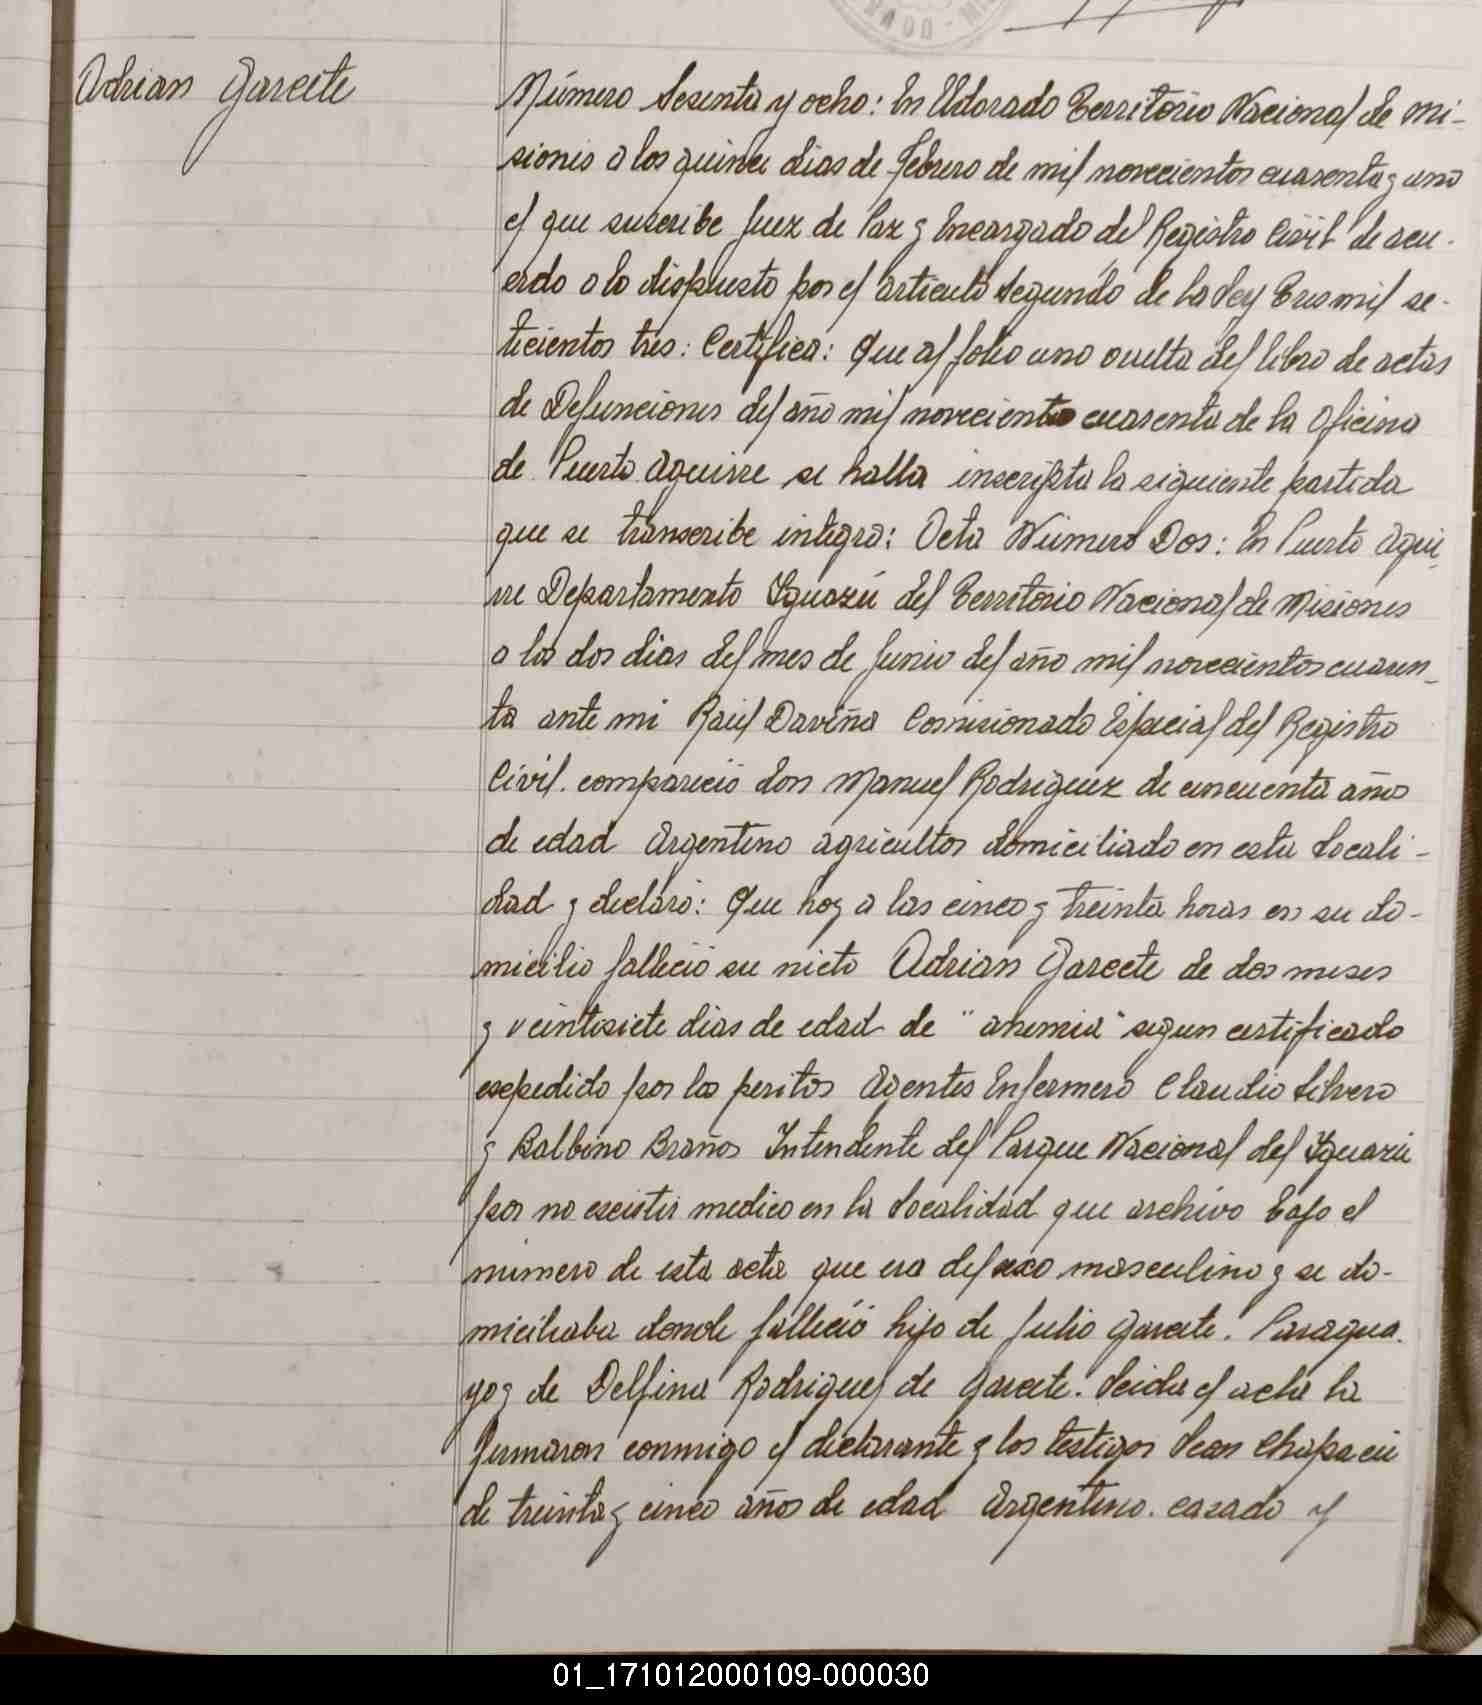 Adrian Garcete
Número Sesenta y ocho: En Eldorado Territorio Nacional de Mi-
siones a los quince dias de Febrero de mil novecientos cuarenta y uno
el que suscribe Juez de Paz y Encargado del Registro Civil de acu-
erdo a lo dispuesto por el articulo Segundo de la Ley Tres mil se-
tecientos tres: Certifica: Que al folio uno vuelta del libro de actas
de Defunciones del año mil novecientos cuarenta de la Oficina
de Puerto Aguirre se halla inscripta la siguiente partida
que se transcribe integra: Acta Número Dos: En Puerto Agui-
rre Departamento Iguazú del Territorio Nacional de Misiones
a los dos dias del mes de Junio del año mil novecientos cuaren-
ta ante mi Raúl Daviña Comisionado Especial del Registro
Civil. compareció don Manuel Rodriguez de cincuenta años
de edad Argentino agricultor domiciliado en esta Locali-
dad y declaró: Que hoy a las cinco y treinta horas en su do-
micilio falleció su nieto Adrian Garcete de dos meses
y veintisiete dias de edad de "anemia" segun certificado
expedido por los peritos Agentes Enfermero Claudio Silvero
y Balbino Braños Intendente del Parque Nacional del Iguazú
por no existir medico en la Localidad que archivo bajo el
número de esta acta que era del sexo masculino y se do-
miciliaba donde falleció hijo de Julio Garcete. Paragua-
yo y de Delfina Rodriguez de Garcete. Leida el acta la
firmaron conmigo el declarante y los testigos
de treinta y cinco años de edad Argentino. casado y
01_171012000109-000030